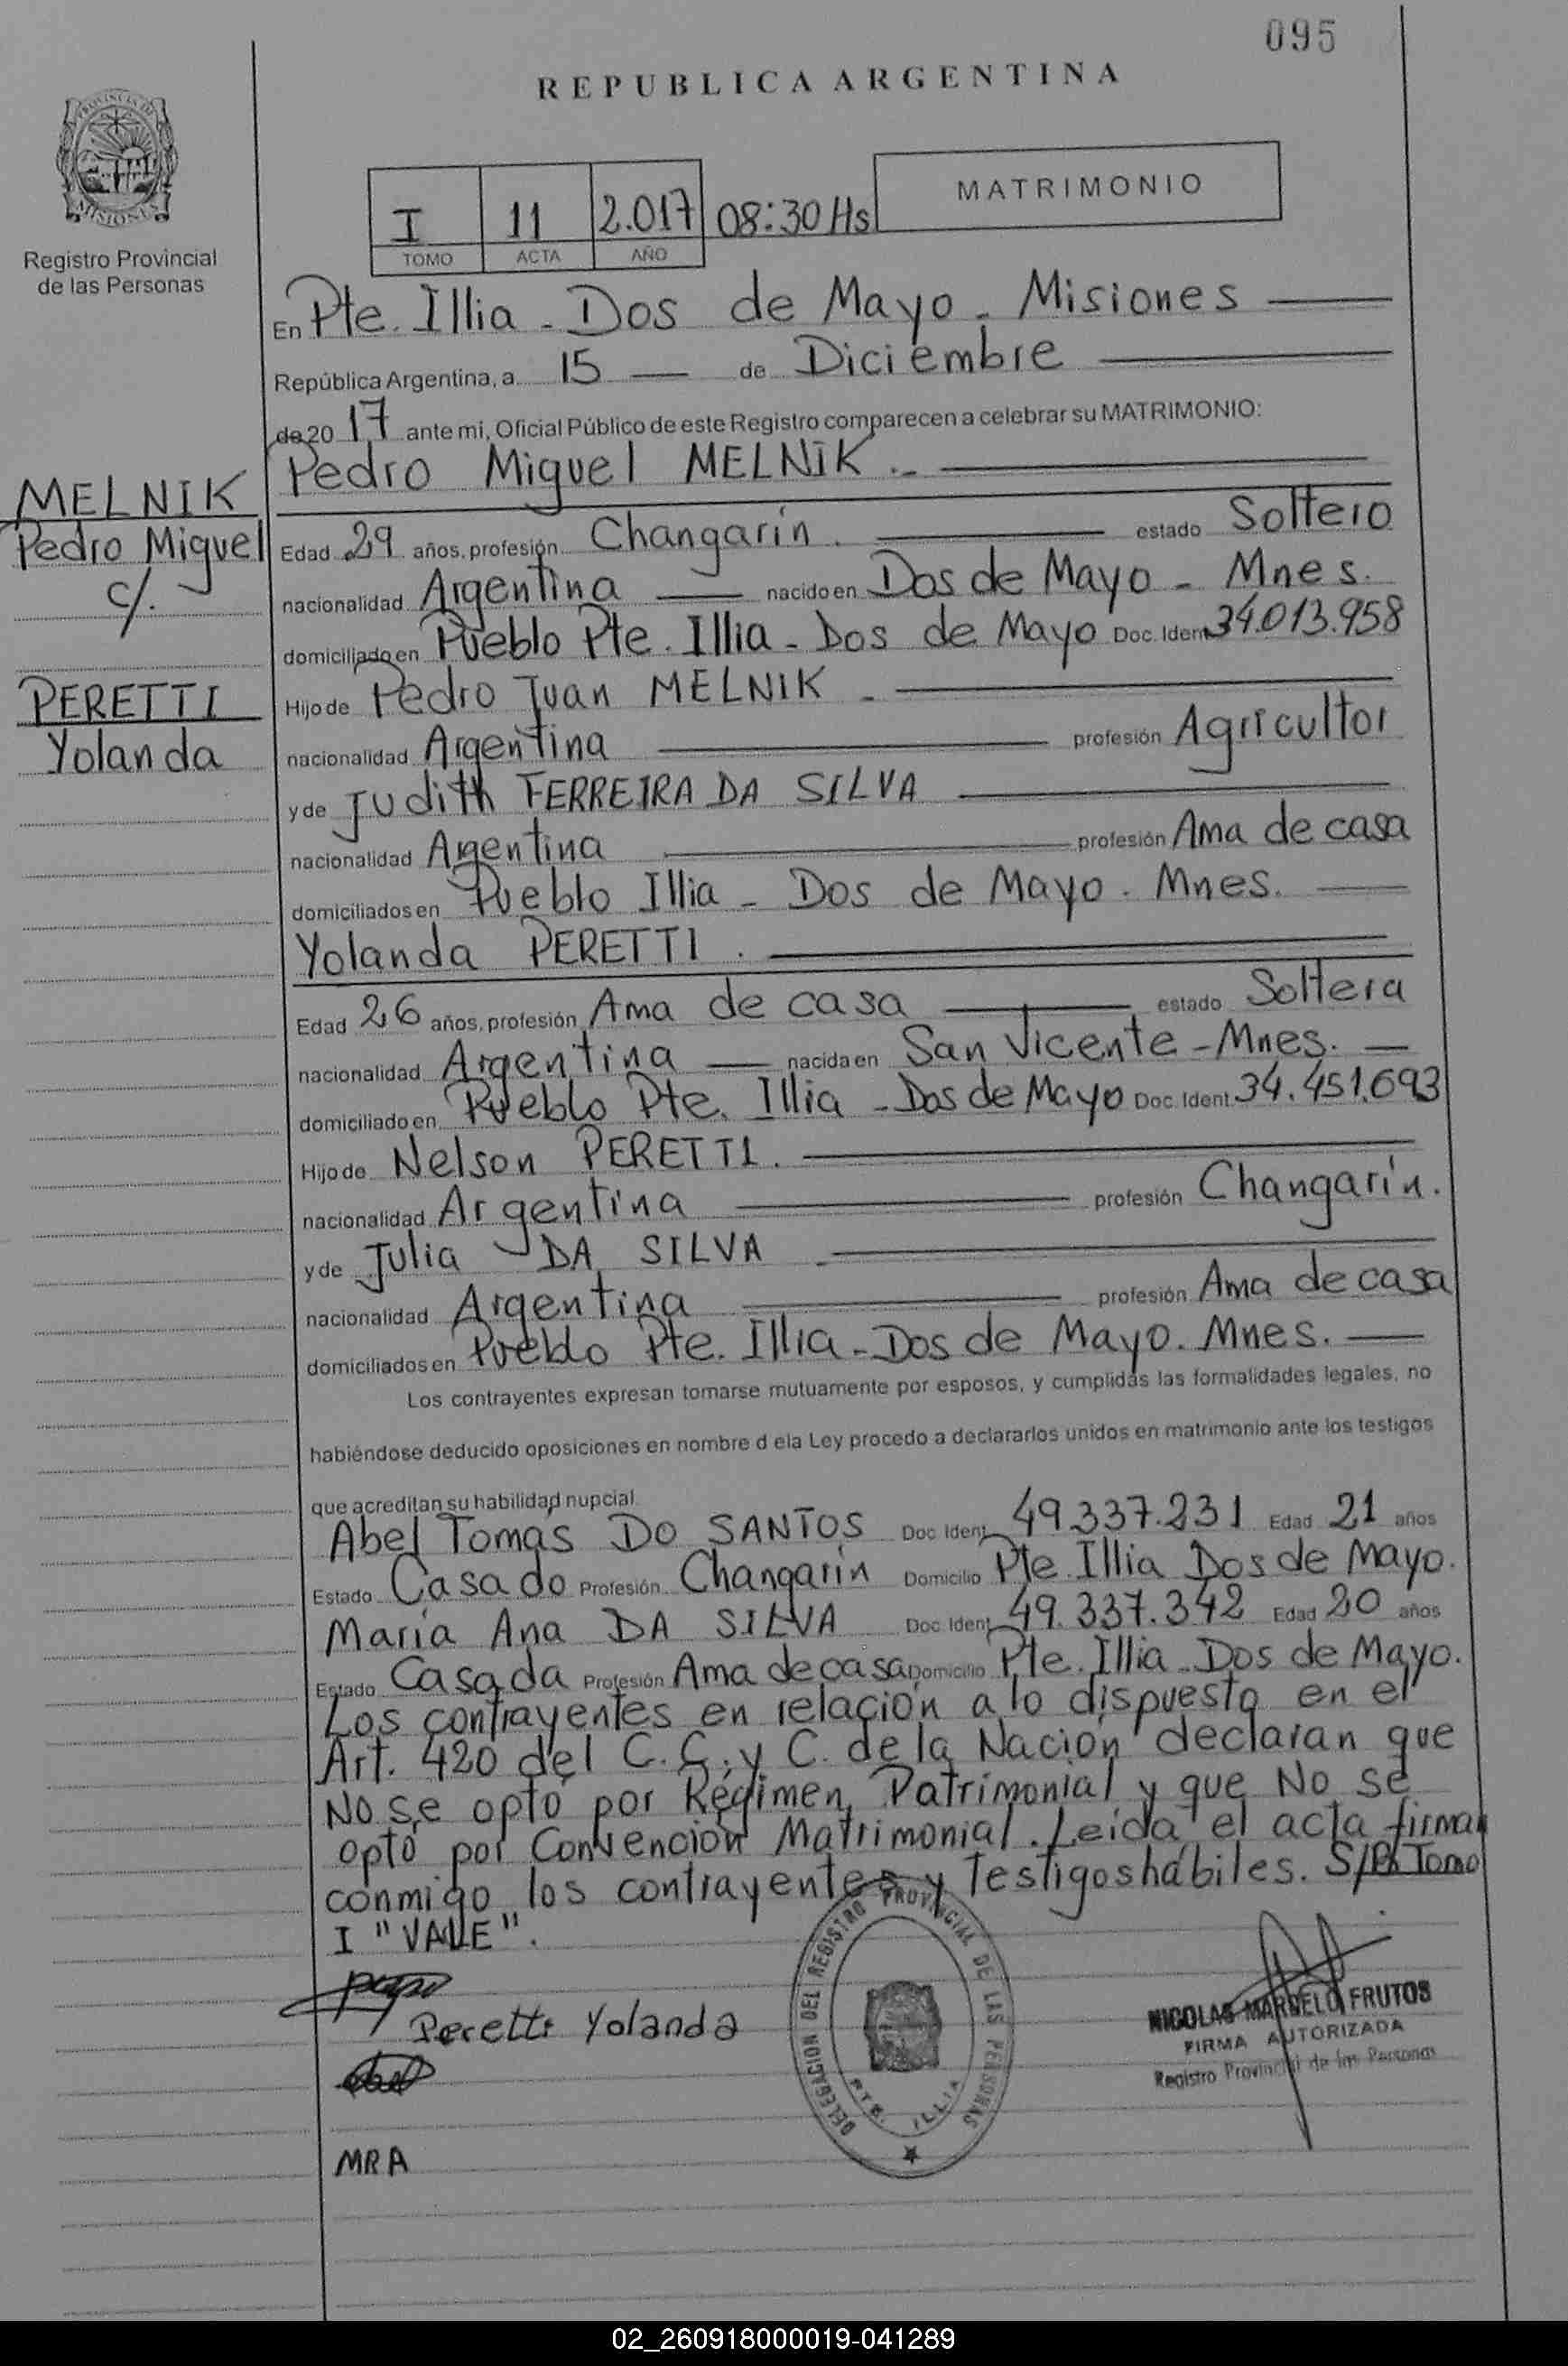 095
REPUBLICA ARGENTINA
PROVINCIA DE
MISIONES
Registro Provincial
de las Personas
I 11 2.017 08:30 Hs
TOMO ACTA AÑO
MATRIMONIO
En Pte. Illia - Dos de Mayo - Misiones
República Argentina, a 15 de Diciembre
de 20 17 ante mi, Oficial Público de este Registro comparecen a celebrar su MATRIMONIO:
MELNIK
Pedro Miguel
c/.
PERETTI
Yolanda
Pedro Miguel MELNIK .-
Edad 29 años, profesión Changarín. estado Soltero
nacionalidad Argentina nacido en Dos de Mayo - Mnes.
domiciliado en Pueblo Pte. Illia - Dos de Mayo Doc. Ident. 34.013.958
Hijo de Pedro Juan MELNIK -
nacionalidad Argentina profesión Agricultor
y de Judith FERREIRA DA SILVA
nacionalidad Argentina profesión Ama de casa
domiciliados en Pueblo Illia - Dos de Mayo. Mnes.
Yolanda PERETTI.
Edad 26 años, profesión Ama de casa estado Soltera
nacionalidad Argentina nacida en San Vicente - Mnes.
domiciliado en Pueblo Pte. Illia - Dos de Mayo Doc. Ident. 34.451.693
Hijo de Nelson PERETTI.
nacionalidad Argentina profesión Changarín.
y de Julia DA SILVA
nacionalidad Argentina profesión Ama de casa
domiciliados en Pueblo Pte. Illia - Dos de Mayo. Mnes.
Los contrayentes expresan tomarse mutuamente por esposos, y cumplidas las formalidades legales, no
habiéndose deducido oposiciones en nombre d ela Ley procedo a declararlos unidos en matrimonio ante los testigos
que acreditan su habilidad nupcial
Abel Tomás DO SANTOS Doc. Ident. 49.337.231 Edad 21 años
Estado Casado Profesión Changarín Domicilio Pte. Illia Dos de Mayo.
María Ana DA SILVA Doc. Ident. 49.337.342 Edad 20 años
Estado Casada Profesión Ama de casa Domicilio Pte. Illia - Dos de Mayo.
Los contrayentes en relación a lo dispuesto en el
Art. 420 del C. C. y C. de la Nación declaran que
No se optó por Régimen Patrimonial y que No se
optó por Convención Matrimonial. Leída el acta firman
conmigo los contrayentes y Testigos hábiles. S/R Tomo
I "VALE".
Peretti Yolanda
MRA
DELEGACION DEL REGISTRO PROVINCIAL DE LAS PERSONAS
PTE. ILLIA
NICOLAS MARCELO FRUTOS
FIRMA AUTORIZADA
Registro Provincial de las Personas
02_260918000019-041289